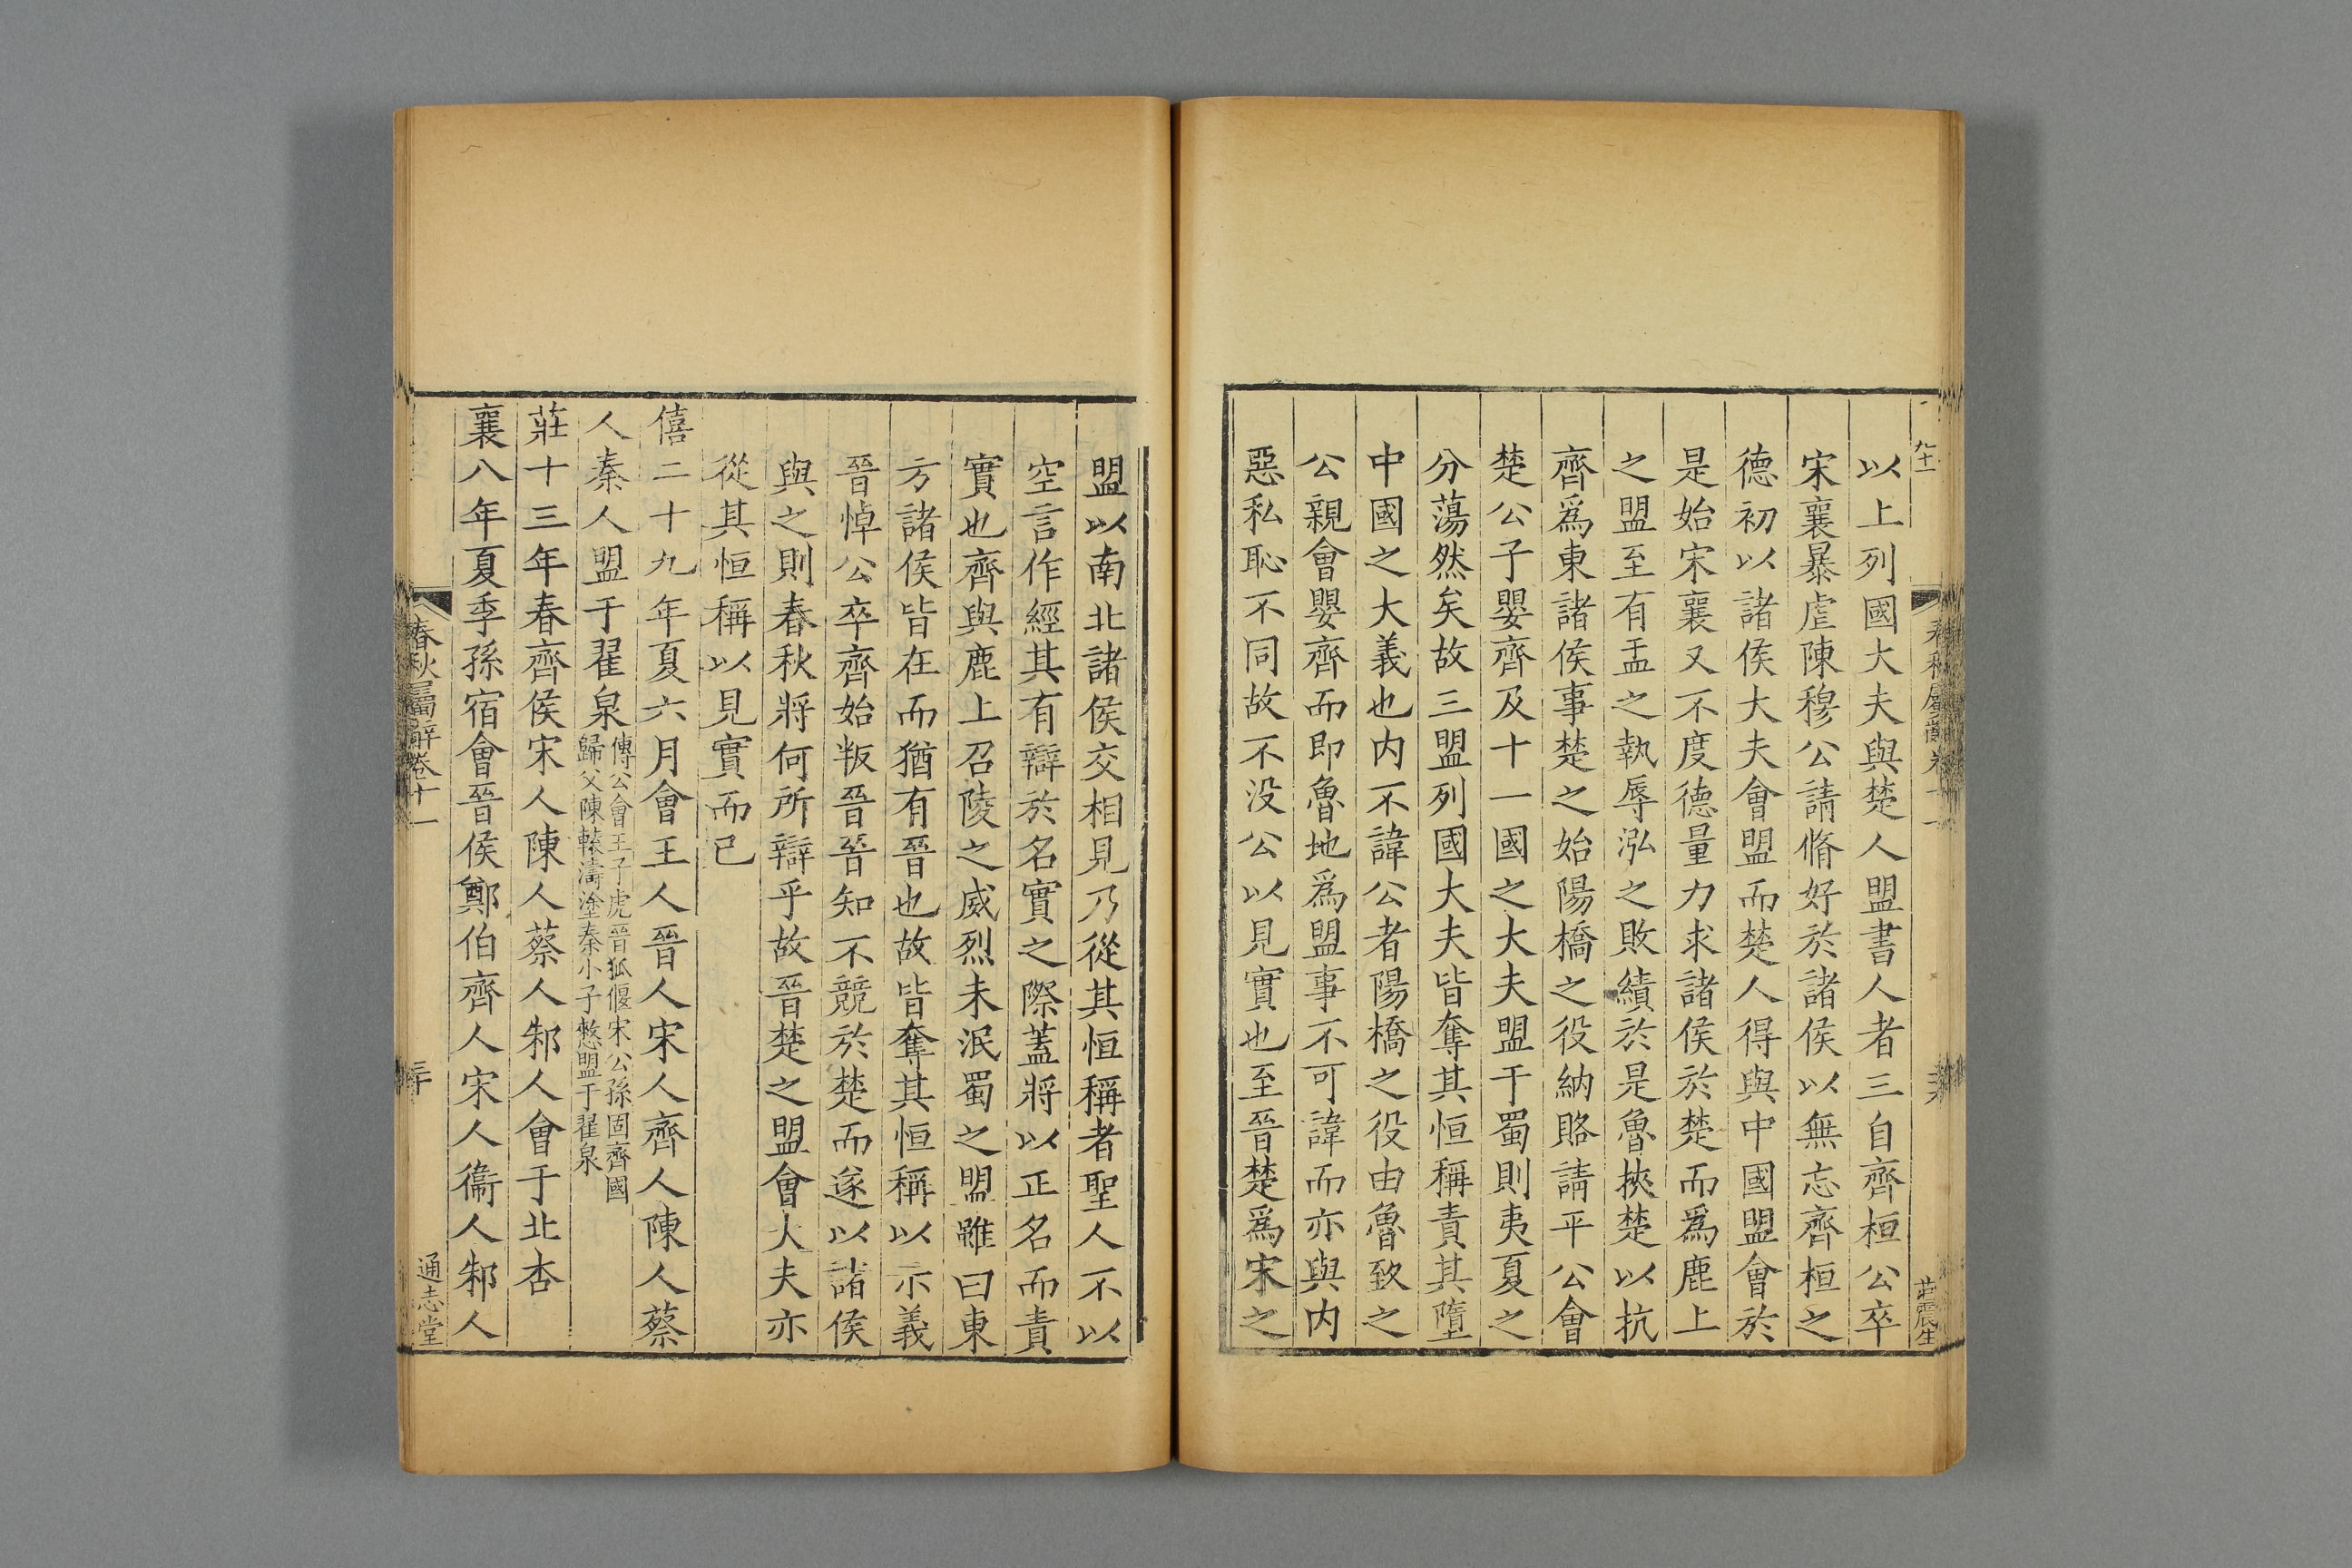 以上列國大夫與楚人盟書人者三自齊桓公卒
宋襄暴虐陳穆公請脩好於諸侯以無忘齊桓之
德初以諸侯大夫會盟而楚人得與中國盟會於
是始宋襄又不度德量力求諸侯於楚而爲鹿上
之盟至有盂之執辱泓之敗績於是魯挾楚以抗
齊爲東諸侯事楚之始陽橋之役納賂請平公會
楚公子嬰齊及十一國之大夫盟于蜀則夷夏之
分蕩然矣故三盟列國大夫皆奪其恒稱責其墮
中國之大義也内不諱公者陽橋之役由魯致之
公親會嬰齊而即魯地爲盟事不可諱而亦與内
惡私恥不同故不没公以見實也至晉楚爲宋之
莊震生
盟以南北諸侯交相見乃從其恒稱者聖人不以
空言作經其有辯於名實之際蓋將以正名而責
實也齊與鹿上召陵之威烈未泯蜀之盟雖曰東
方諸侯皆在而猶有晉也故皆奪其恒稱以示義
晉悼公卒齊始叛晉晉知不競於楚而遂以諸侯
與之則春秋將何所辯乎故晉楚之盟會大夫亦
從其恒稱以見實而已
僖二十九年夏六月會王人晉人宋人齊人陳人蔡
人秦人盟于翟泉傳公會王子虎晉狐偃宋公孫固齊國
歸父陳轅濤塗秦小子憖盟于翟泉
莊十三年春齊侯宋人陳人蔡人邾人會于北杏
襄八年夏季孫宿會晉侯鄭伯齊人宋人衞人邾人
春秋屬辭卷十一
通志堂